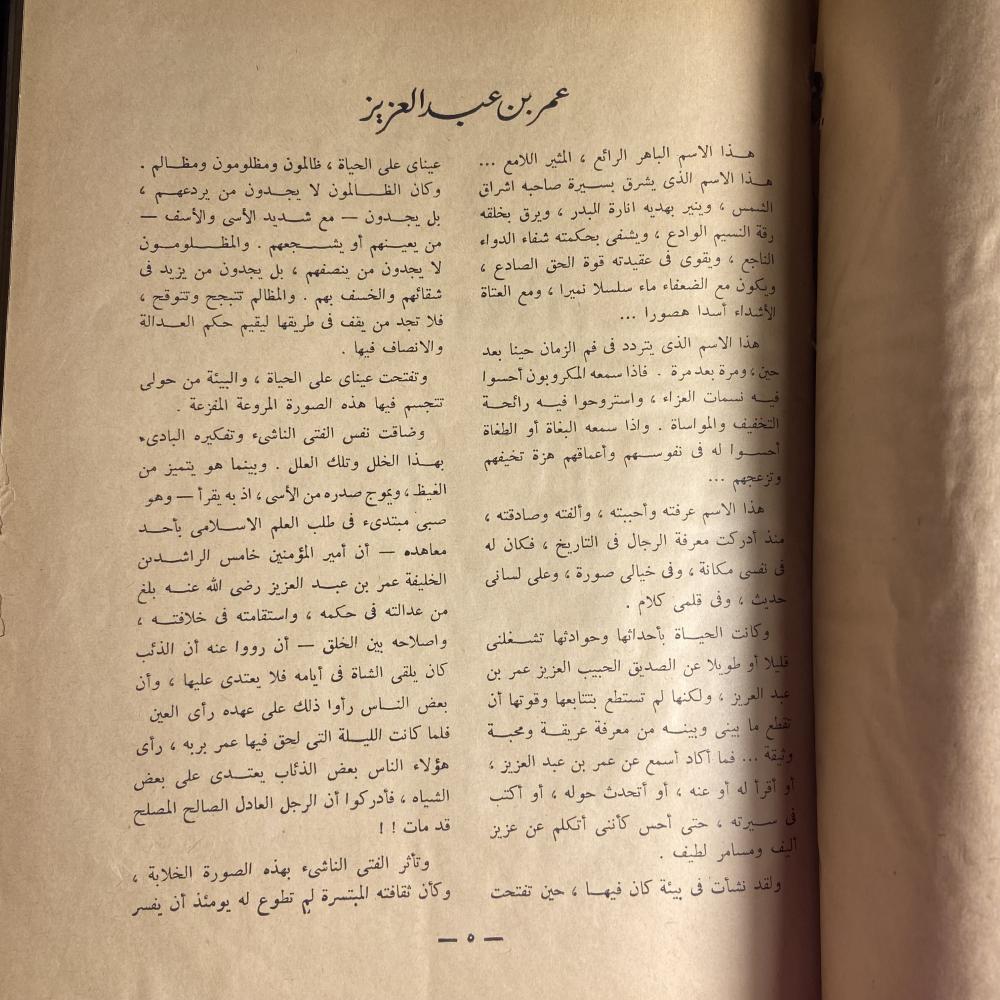 عمر بن عبد العزيز
هذا الاسم الباهر الرائع ، المثير اللامع ...
هذا الاسم الذى يشرق بسيرة صاحبه اشراق
الشمس ، وينير بهديه انارة البدر ، ويرق بخلقه
رقة النسيم الوادع ، ويشفى بحكمته شفاء الدواء
الناجع ، ويقوى فى عقيدته قوة الحق الصادع ،
ويكون مع الضعفاء ماء سلسلا نميرا ، ومع العتاة
الأشداء أسدا هصورا ...
هذا الاسم الذى يتردد فى فم الزمان حينا بعد
حين ، ومرة بعد مرة . فاذا سمعه المكروبون أحسوا
فيه نسمات العزاء ، واستروحوا فيه رائحة
التخفيف والمواساة . واذا سمعه البغاة أو الطغاة
أحسوا له فى نفوسهم وأعماقهم هزة تخيفهم
وتزعجهم ...
هذا الاسم عرفته وأحببته ، وألفته وصادقته ،
منذ أدركت معرفة الرجال فى التاريخ ، فكان له
فى نفسى مكانة ، وفى خيالى صورة ، وعلى لسانى
حديث ، وفى قلمى كلام .
وكانت الحياة بأحداثها وحوادثها تشغلنى
قليلا أو طويلا عن الصديق الحبيب العزيز عمر بن
عبد العزيز ، ولكنها لم تستطع بتتابعها وقوتها أن
تقطع ما بينى وبينه من معرفة عريقة ومحبة
وثيقة ... فما أكاد أسمع عن عمر بن عبد العزيز ،
أو أقرأ له أو عنه ، أو أتحدث حوله ، أو أكتب
فى سيرته ، حتى أحس كأننى أتكلم عن عزيز
أليف ومسامر لطيف .
ولقد نشأت فى بيئة كان فيها ، حين تفتحت
عيناى على الحياة ، ظالمون ومظلومون ومظالم .
وكان الظالمون لا يجدون من يردعهم ،
بل يجدون — مع شديد الأسى والأسف —
من يعينهم أو يشجعهم . والمظلومون
لا يجدون من ينصفهم ، بل يجدون من يزيد فى
شقائهم والخسف بهم . والمظالم تتبجح وتتوقح ،
فلا تجد من يقف فى طريقها ليقيم حكم العدالة
والانصاف فيها .
وتفتحت عيناى على الحياة ، والبيئة من حولى
تتجسم فيها هذه الصورة المروعة المفزعة .
وضاقت نفس الفتى الناشىء وتفكيره البادىء
بهذا الخلل وتلك العلل . وبينما هو يتميز من
الغيظ ، ويموج صدره من الأسى ، اذ به يقرأ — وهو
صبى مبتدىء فى طلب العلم الاسلامى بأحد
معاهده — أن أمير المؤمنين خامس الراشدين
الخليفة عمر بن عبد العزيز رضى الله عنه بلغ
من عدالته فى حكمه ، واستقامته فى خلافته ،
واصلاحه بين الخلق — أن رووا عنه أن الذئب
كان يلقى الشاة فى أيامه فلا يعتدى عليها ، وأن
بعض الناس رأوا ذلك على عهده رأى العين
فلما كانت الليلة التى لحق فيها عمر بربه ، رأى
هؤلاء الناس بعض الذئاب يعتدى على بعض
الشياه ، فأدركوا أن الرجل العادل الصالح المصلح
قد مات ! !
وتأثر الفتى الناشىء بهذه الصورة الخلابة ،
وكأن ثقافته المبتسرة لم تطوع له يومئذ أن يفسر
— ٥ —